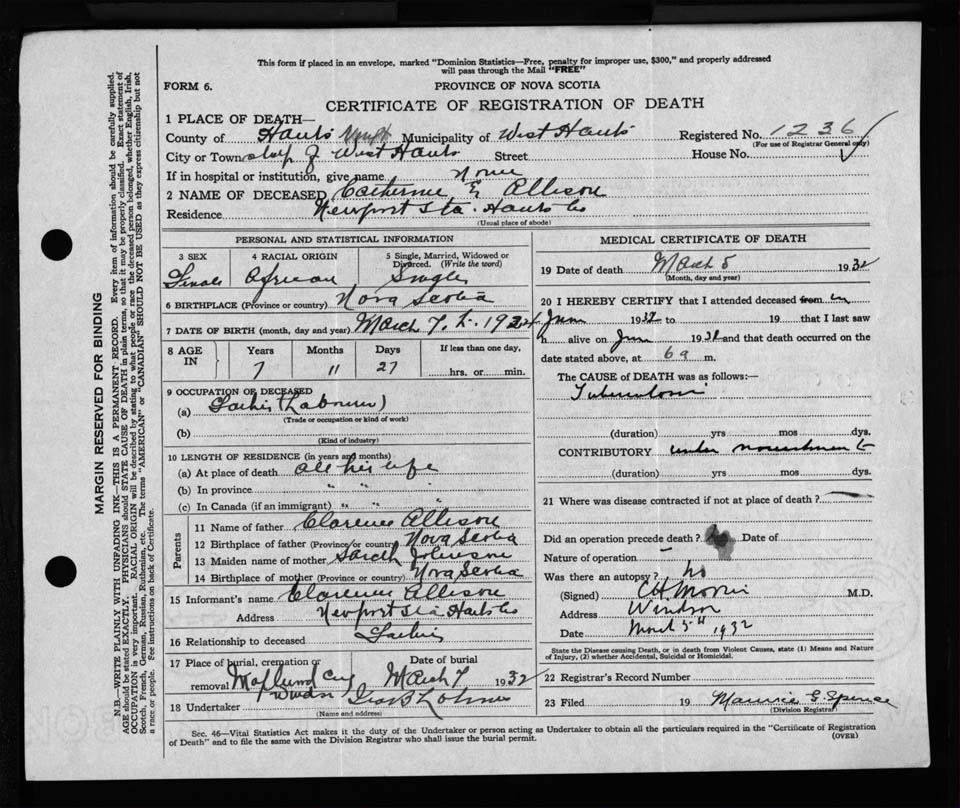 This form if placed in an envelope, marked "Dominion Statistics—Free, penalty for improper use, $300," and properly addressed
will pass through the Mail "FREE"
FORM 6.
PROVINCE OF NOVA SCOTIA
CERTIFICATE OF REGISTRATION OF DEATH
1 PLACE OF DEATH—
County of Hants Municipality of West Hants Registered No. 1236
(For use of Registrar General only)
City or Town of West Hants Street House No.
If in hospital or institution, give name None
2 NAME OF DECEASED Catherine E Allison
Residence Newport Sta. Hants Co
(Usual place of abode)
PERSONAL AND STATISTICAL INFORMATION
3 SEX 4 RACIAL ORIGIN 5 Single, Married, Widowed or Divorced. (Write the word)
Female African Single
6 BIRTHPLACE (Province or country) Nova Scotia
7 DATE OF BIRTH (month, day and year) March 7th 1924
8 AGE IN Years Months Days If less than one day,
7 11 27 hrs. or min.
9 OCCUPATION OF DECEASED
(a) (Labourer)
(Trade or occupation or kind of work)
(b)
(Kind of industry)
10 LENGTH OF RESIDENCE (in years and months)
(a) At place of death all his life
(b) In province " " "
(c) In Canada (if an immigrant) " " "
Parents
11 Name of father Clarence Allison
12 Birthplace of father (Province or country) Nova Scotia
13 Maiden name of mother Sarah Johnson
14 Birthplace of mother (Province or country) Nova Scotia
15 Informant's name Clarence Allison
Address Newport Sta Hants Co
16 Relationship to deceased Father
17 Place of burial, cremation or removal Cem Windsor Date of burial March 7 1932
18 Undertaker
(Name and address)
MEDICAL CERTIFICATE OF DEATH
19 Date of death March 5 1932
(Month, day and year)
20 I HEREBY CERTIFY that I attended deceased from in
June 1931 to 19 that I last saw
h alive on June 1931 and that death occurred on the
date stated above, at 6 a m.
The CAUSE OF DEATH was as follows:—
Tuberculosis
(duration) yrs mos dys.
CONTRIBUTORY under nourishment
(duration) yrs mos dys.
21 Where was disease contracted if not at place of death?
Did an operation precede death? Date of
Nature of operation
Was there an autopsy? no
(Signed) C H Morris M.D.
Address Windsor
Date March 5th 1932
State the Disease causing Death, or in death from Violent Causes, state (1) Means and Nature
of Injury, (2) whether Accidental, Suicidal or Homicidal.
22 Registrar's Record Number
23 Filed 19 Maurice E. Spence
(Division Registrar)
Sec. 46—Vital Statistics Act makes it the duty of the Undertaker or person acting as Undertaker to obtain all the particulars required in the "Certificate of Registration
of Death" and to file the same with the Division Registrar who shall issue the burial permit.
(OVER)
MARGIN RESERVED FOR BINDING
N.B.—WRITE PLAINLY WITH UNFADING INK—THIS IS A PERMANENT RECORD. Every item of information should be carefully supplied.
AGE should be stated EXACTLY. PHYSICIANS should STATE CAUSE OF DEATH in plain terms, so that it may be properly classified. Exact statement of
OCCUPATION is very important. RACIAL ORIGIN will be described by stating to what people or race the deceased person belonged, whether English, Irish,
Scotch, French, German, Russian, Ruthenian, etc. The terms "AMERICAN" or "CANADIAN" SHOULD NOT BE USED as they express citizenship but not
a race or people. See instructions on back of Certificate.